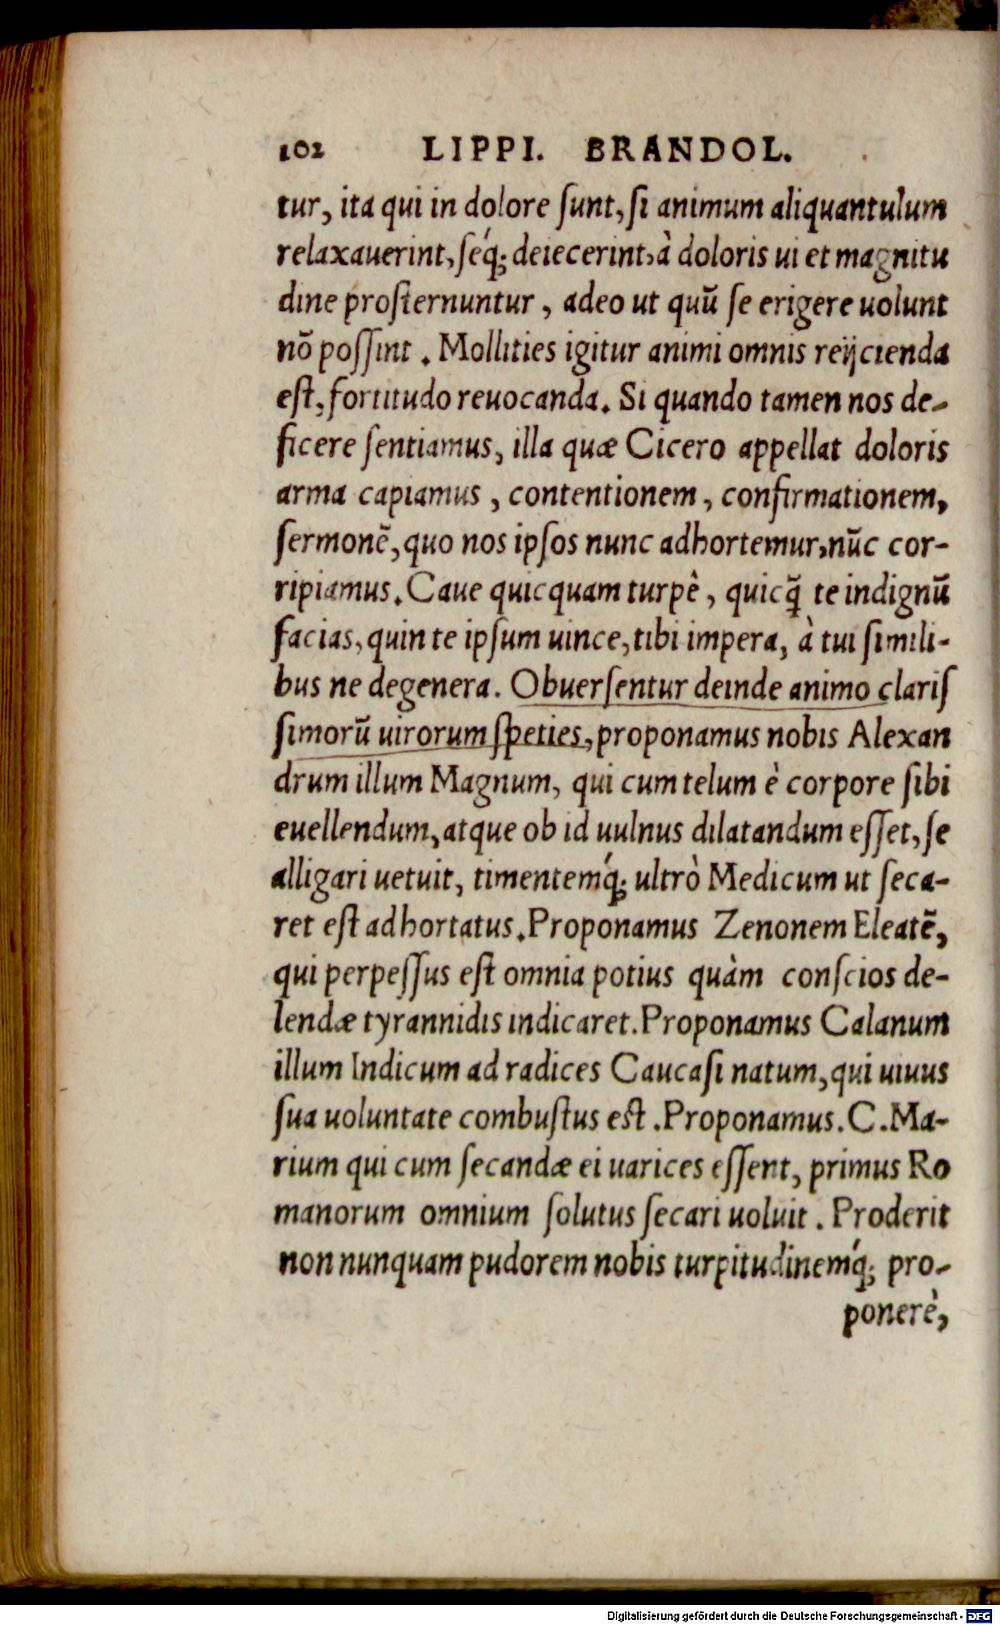 102 LIPPI. BRANDOL.
tur, ita qui in dolore ſunt, ſi animum aliquantulum
relaxauerint, ſeq́; deiecerint, à doloris ui et magnitu
dine proſternuntur, adeo ut quū ſe erigere uolunt
nō poſſint. Mollities igitur animi omnis reijcienda
eſt, fortitudo reuocanda. Si quando tamen nos de-
ficere ſentiamus, illa quæ Cicero appellat doloris
arma capiamus, contentionem, confirmationem,
ſermonē, quo nos ipſos nunc adhortemur, nūc cor-
ripiamus. Caue quicquam turpè, quicq̄ te indignū
facias, quin te ipſum uince, tibi impera, à tui ſimili-
bus ne degenera. Obuerſentur deinde animo clariſ
ſimorū uirorum ſpeties, proponamus nobis Alexan
drum illum Magnum, qui cum telum è corpore ſibi
euellendum, atque ob id uulnus dilatandum eſſet, ſe
alligari uetuit, timentemq́; ultrò Medicum ut ſeca-
ret eſt adhortatus. Proponamus Zenonem Eleatē,
qui perpeſſus eſt omnia potius quàm conſcios de-
lendæ tyrannidis indicaret. Proponamus Calanum
illum Indicum ad radices Caucaſi natum, qui uiuus
ſua uoluntate combuſtus eſt. Proponamus. C. Ma-
rium qui cum ſecandæ ei uarices eſſent, primus Ro
manorum omnium ſolutus ſecari uoluit. Proderit
non nunquam pudorem nobis turpitudinemq́; pro-
ponerè,
Digitalisierung gefördert durch die Deutsche Forschungsgemeinschaft - DFG